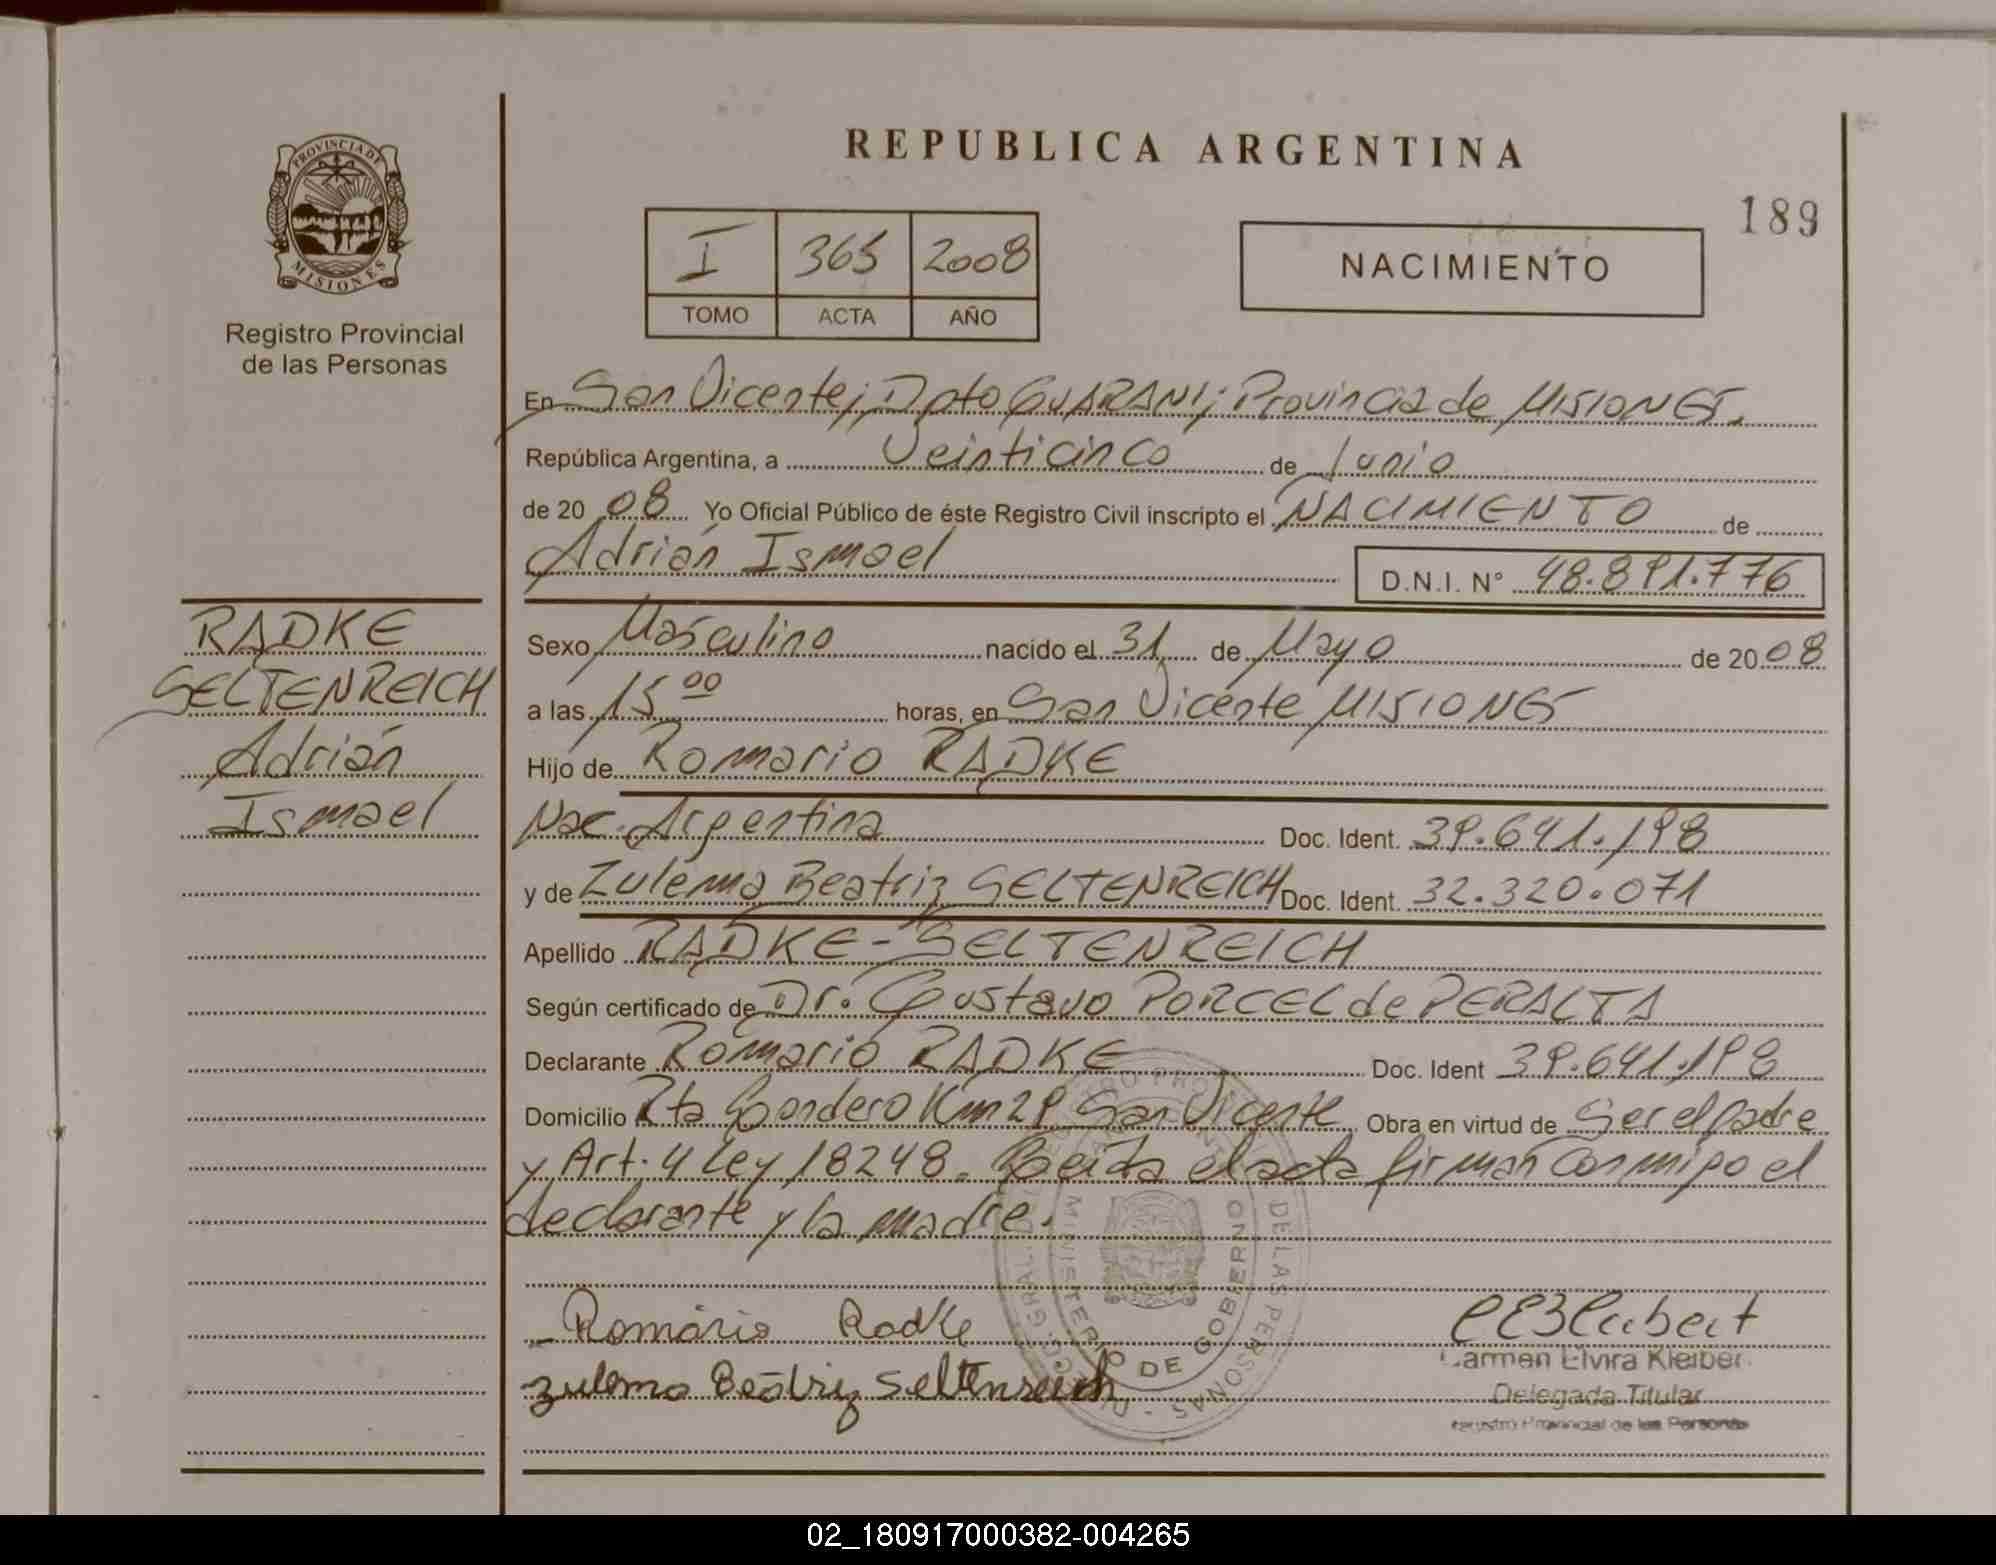 REPUBLICA ARGENTINA
189
PROVINCIA DE
MISIONES
Registro Provincial
de las Personas
I 365 2008
TOMO ACTA AÑO
NACIMIENTO
En San Vicente; Dpto GUARANI; Provincia de MISIONES.
República Argentina, a Veinticinco de Junio
de 20 08 Yo Oficial Público de éste Registro Civil inscripto el NACIMIENTO de
Adrián Ismael D.N.I. N° 48.891.776
RADKE
SELTENREICH
Adrián
Ismael
Sexo Masculino nacido el 31 de Mayo de 20 08
a las 15 00 horas, en San Vicente MISIONES
Hijo de Romario RADKE
Nac. Argentina Doc. Ident. 39.641.198
y de Zulema Beatriz SELTENREICH Doc. Ident. 32.320.071
Apellido RADKE-SELTENREICH
Según certificado de Dr. Gustavo PORCEL de PERALTA
Declarante Romario RADKE Doc. Ident 39.641.198
Domicilio Rta Km 29 San Vicente Obra en virtud de Ser el padre
y Art. 4 Ley 18248. el acta firman conmigo el
declarante y la madre.
MINISTERIO DE GOBIERNO
DE LAS PERSONAS
Romário Radke
Zulema Beatriz Seltenreich
Carmen Elvira Kleiber
Delegada Titular
Registro Provincial de las Personas
02_180917000382-004265